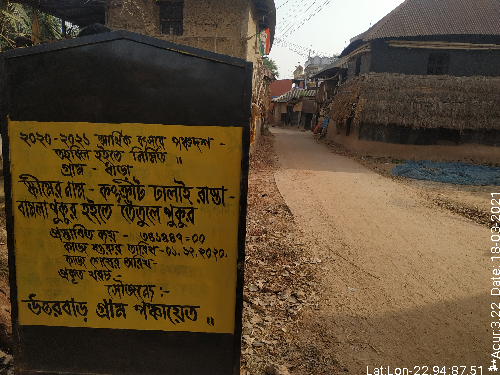 ২০২০-২০২১ আর্থিক বৎসরে পঞ্চদশ -
তহবিল হইতে নির্মিত ॥
গ্রাম - ধাঁড়া
স্কীমের নাম - কংক্রীট ঢালাই রাস্তা -
বাঙলা পুকুর হইতে তেঁতুলে পুকুর
প্রস্তাবিত ব্যয় - ৩৪১৪৪৭=০০
কাজ শুরুর তারিখ - ০১.১২.২০২০.
কাজ শেষের তারিখ -
প্রকৃত খরচ -
সৌজন্যে :-
উত্তরবাড় গ্রাম পঞ্চায়েত ॥
Lat:Lon-22.94:87.51
**Acur:3.22 Date: 18-03-2021